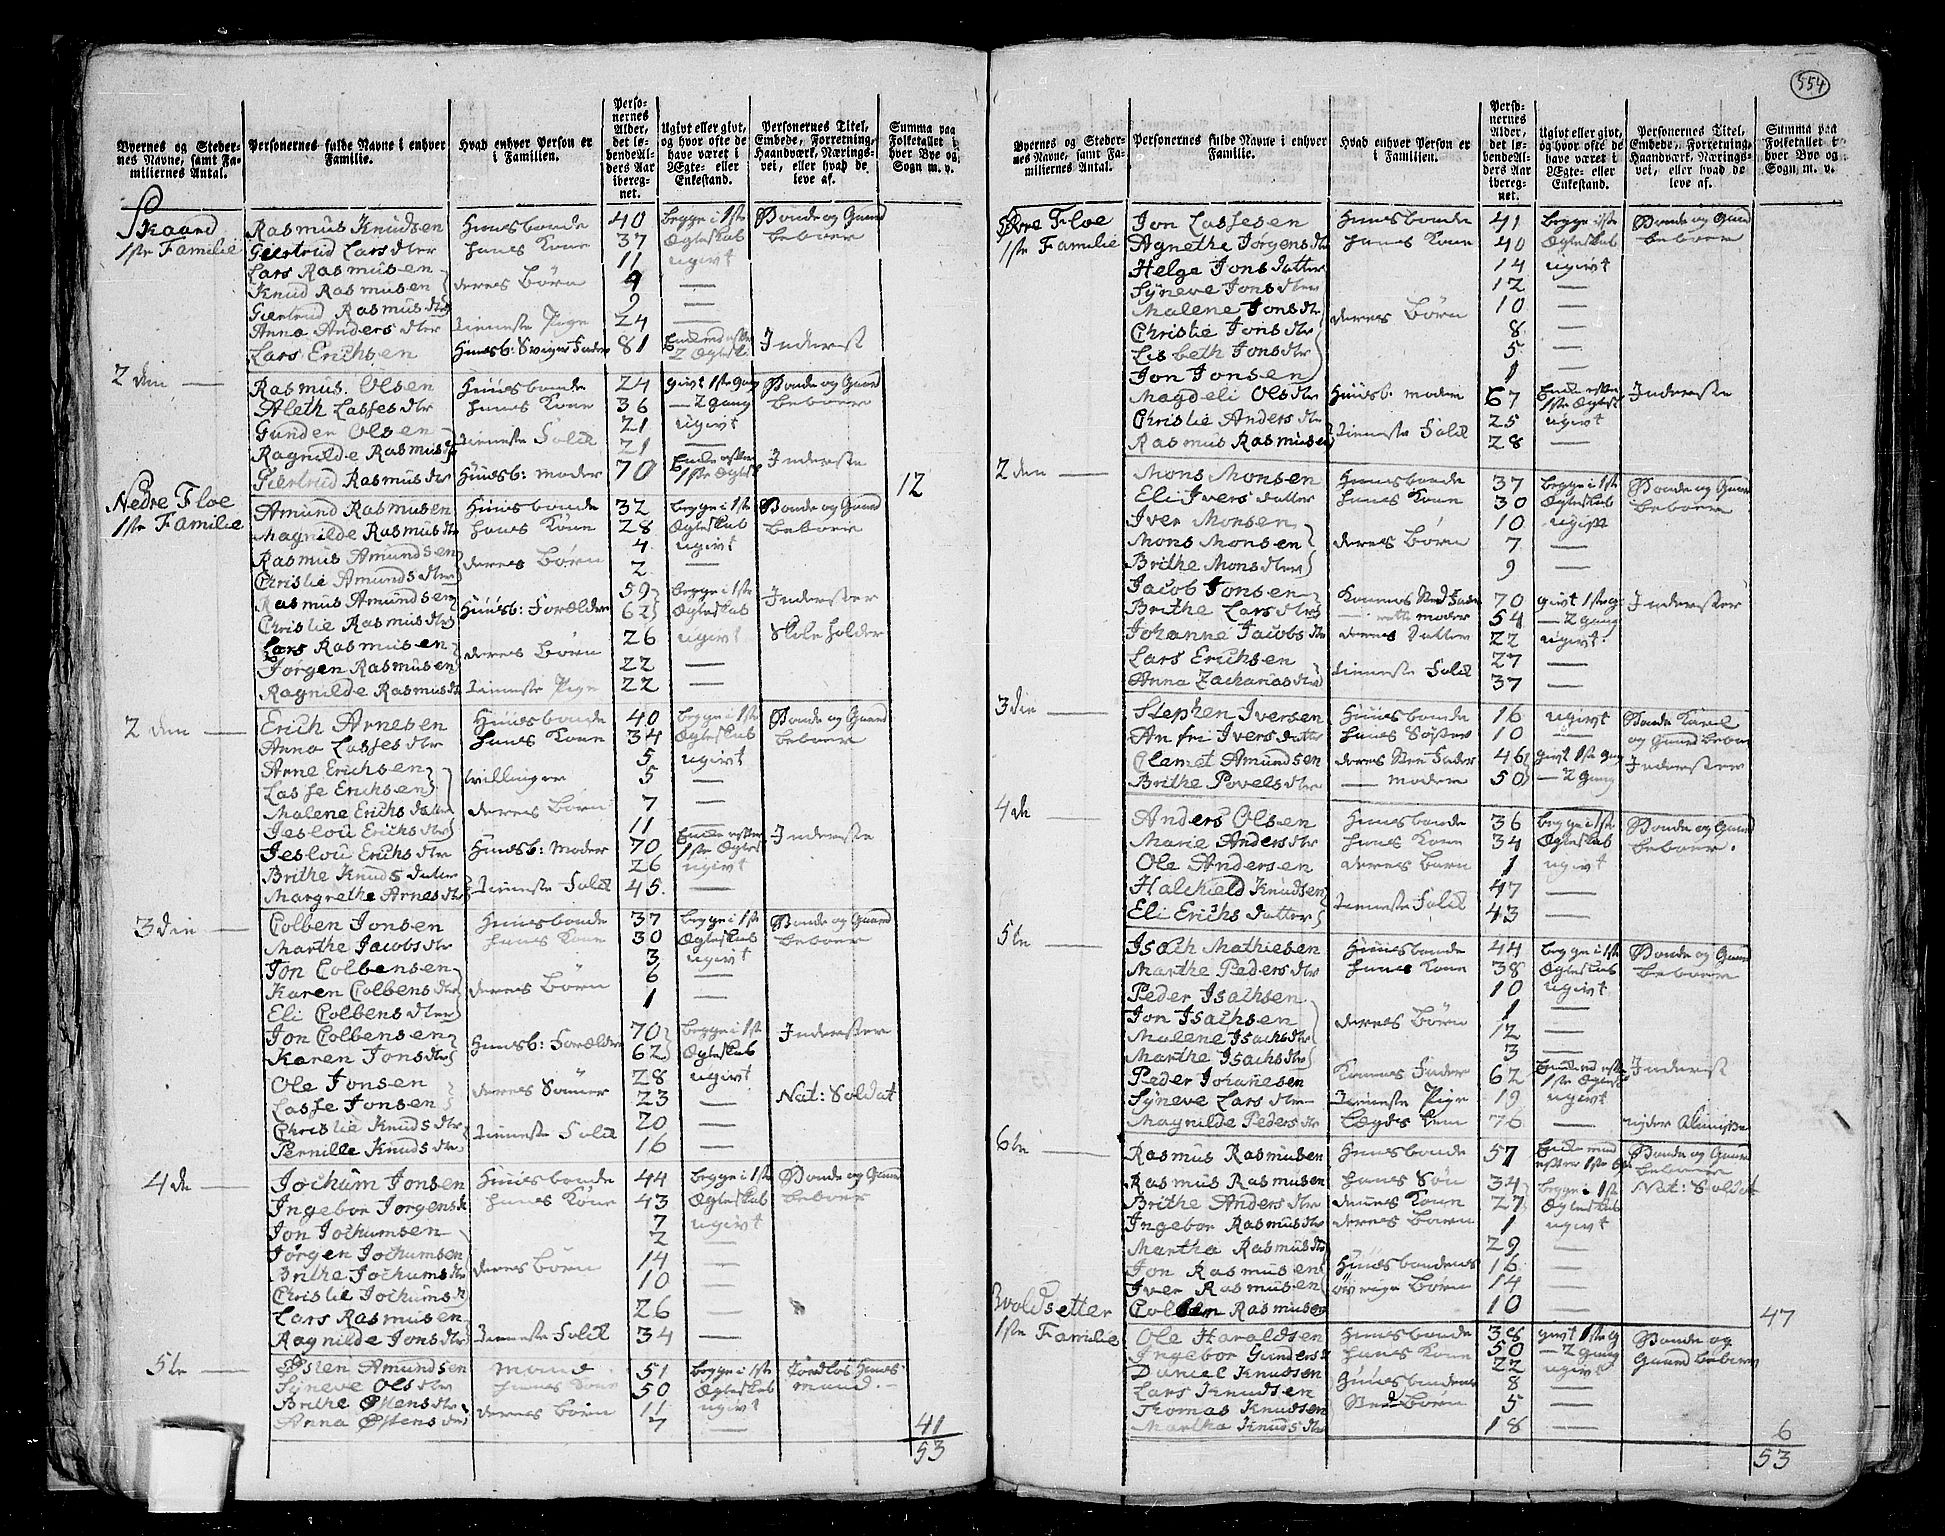 554
Byernes og Stedernes Navne, samt Familiernes Antal.
Personernes fulde Navne i enhver Familie.
Hvad enhver Person er i Familien.
Personernes Alder, det løbendeAlders Aar iberegnet.
Ugivt eller givt, og hvor ofte de have været i Ægte- eller Enkestand.
Personernes Titel, Embede, Forretning, Haandværk, Næringsvei, eller hvad de leve af.
Summa paa Folketallet i hver Bye og Sogn m. v.
Skaard
1ste Familie
Rasmus Knudsen Huusbonde 40 begge i 1ste Bonde og Gaard
Giertrud Lars dtter hans Kone 37 Ægteskab beboer
Lars Rasmusen 11 ugivt
Knud Rasmusen deres Børn 4 —
Giertrud Rasmus dtr 9 —
Anna Anders dtter tieneste Pige 24 —
Lars Erichsen Huusb: Sviger Fader 81 Enkemd efter 2 Ægtesk Inderst
2 den —
Rasmus Olsen Huusbonde 24 givt 1ste gang Bonde og Gaard
Aleth Lasses dtr hans Kone 36 — 2 gang beboer
Gunder Olsen 21 ugivt
Ragnilde Rasmus dr tieneste Folck 21 —
Giertrud Rasmus dtr Huusb: moder 70 Enke efter 1ste Ægtesk Inderste
12
Nedre Floe
1ste Familie
Amund Rasmusen Huusbonde 32 begge i 1ste Bonde og Gaard
Magnilde Rasmus dtr hans Kone 28 Ægteskab beboer
Rasmus Amundsen 4 ugivt
Christie Amunds dtr deres Børn 2 —
Rasmus Amundsen 59 begge i 1ste
Christie Rasmus dtr Huusb: Forældre 62 Ægteskab Inderster
Lars Rasmusen 26 ugivt Skoleholder
Jørgen Rasmusen deres Børn 22 —
Ragnilde Rasmus dtr tieneste Pige 22 —
2 den —
Erich Arnesen Huusbonde 40 begge i 1ste Bonde og Gaard
Anna Lasses dtr hans Kone 34 Ægteskab beboer
Arne Erichsen 5 ugivt
Lasse Erichsen tvillinger 5 —
Malene Erichs datter deres Børn 7 —
Jeslou Erichs dtr 11 —
Jeslou Erichs dtr Huusb: Moder 70 Enke efter 1ste Ægtes Inderste
Brithe Knuds datter 26 ugivt
Margrethe Arnes dtr tieneste Folck 45. —
3 die —
Colben Jonsen Huusbonde 37 begge i 1ste Bonde og Gaard
Marthe Jacobs dtr hans Kone 30 Ægteskab beboer
Jon Colbensen 3 ugivt
Karen Colbens dtr deres Børn 6 —
Eli Colbens dtr 1 —
Jon Colbensen 70 begge i 1ste Inderster
Karen Jons dtr Huusb: Forældre 62 Ægteskab
Ole Jonsen 28 ugivt
Lasse Jonsen deres Sønner 23 — Nat: Soldat
Christie Knuds dtr 20 —
Pernille Knuds dtr tieneste Folck 16 —
4 de —
Jochum Jonsen Huusbonde 44 begge i 1ste Bonde og Gaard
Ingebor Jørgens dr hans Kone 43 Ægteskab beboer
Jon Jochumsen 7 ugivt
Jørgen Jochumsen 2 —
Brithe Jochums dtr deres Børn 14 —
Christie Jochums dr 10 —
Lars Rasmusen 26 —
Ragnilde Jons dtr tieneste Folck 34 —
5te —
Østen Amundsen Mand 51 begge i 1ste Jordløs Huusmand.
Syneve Ols dtr hans Kone 50 Ægteskab
Brithe Østens dtr 11 ugivt
Anna Østens dtr deres Børn 7 —
41
53
Byernes og Stedernes Navne, samt Familiernes Antal.
Personernes fulde Navne i enhver Familie.
Hvad enhver Person er i Familien.
Personernes Alder, det løbendeAlders Aar iberegnet.
Ugivt eller givt, og hvor ofte de have været i Ægte- eller Enkestand.
Personernes Titel, Embede, Forretning, Haandværk, Næringsvei, eller hvad de leve af.
Summa paa Folketallet i hver Bye og Sogn m. v.
Øvre Floe
1ste Familie
Jon Lassesen Huusbonde 41 begge i 1ste Bonde og Gaard
Agnethe Jørgens dtr hans Kone 40 Ægteskab beboer
Helge Jons datter 14 ugivt
Syneve Jons dtter 12 —
Malene Jons dtr deres Børn 10 —
Christie Jons dtr 8 —
Lisbeth Jons dtr 5 —
Jon Jonsen 1 —
Magdeli Ols dtr Huusb: moder 67 Enke efter 1ste Ægtesk Inderste
Christie Anders dtr 25 ugivt
Rasmus Rasmusen tieneste Folck 28 —
2 den —
Mons Monsen Huusbonde 37 begge i 1ste Bonde og Gaard
Eli Ivers datter hans Kone 30 Ægteskab beboer
Iver Monsen 10 ugivt
Mons Monsen deres Børn 7 —
Brithe Mons dtter 9 —
Jacob Jonsen Konens Sted Fader 70 givt 1ste g Inderster
Brithe Lars dtr — rette moder 54 — 2 gang
Johanne Jacobs dtr deres Datter 22 ugivt.
Lars Erichsen 27 —
Anna Zacharias dtr tieneste Folck 37 —
3 die —
Stephen Iversen Huusbonde 16 ugivt Bonde Karl
An fri Ivers datter hans Søster 10 — og Gaard beboer
Clamet Amundsen deres Sted Fader 46 givt 1ste gang Inderster
Brithe Povels dtr — moder 50 — 2 gang
4 de —
Anders Olsen Huusbonde 36 begge i 1ste Bonde og Gaard
Marie Anders dtr hans Kone 34 Ægteskab beboer.
Ole Andersen deres barn 1 ugivt
Halchield Knudsen 47 —
Eli Erichs datter tieneste Folck 43 —
5te —
Isach Mathiesen Huusbonde 44 begge i 1ste Bonde og Gaard
Marthe Peders dtr hans Kone 38 Ægteskab beboer
Peder Isachsen 10 ugivt
Jon Isachsen 1 —
Malene Isachs dtr deres Børn 12 —
Marthe Isachs dtr 3 —
Peder Johanesen Konens Fader 62 Enkemd efter 1ste Ægtes Inderst
Syneve Lars dtr tieneste Pige 19 ugivt
Magnilde Peders dtr Lægds Lem 76 — nyder Almisse
6te —
Rasmus Rasmusen Huusbonde 57 Enke mand efter 1ste Bonde og Gaard beboer
Rasmus Rasmusen hans Søn 34 begge i 1ste Nat: Soldat
Brithe Anders dtr dennes Kone 27 Ægteskab
Ingebor Rasmus dtr deres Barn 1 ugivt
Martha Rasmus dtr 29 —
Jon Rasmusen Huusbondens 16 —
Iver Rasmusen øvrige Børn 14 —
Colben Rasmusen 10 —
47
Qvoldsetter
1ste Familie
Ole Haraldsen Huusbonde 38 givt 1ste g Bonde og
Ingebor Gunders dr hans Kone 50 — 2 gang Gaard beboer
Daniel Knudsen 22 ugivt
Lars Knudsen Huusbondens 8 —
Thomas Knudsen Sted Børn 5 —
Martha Knuds dtr 18 —
6
53